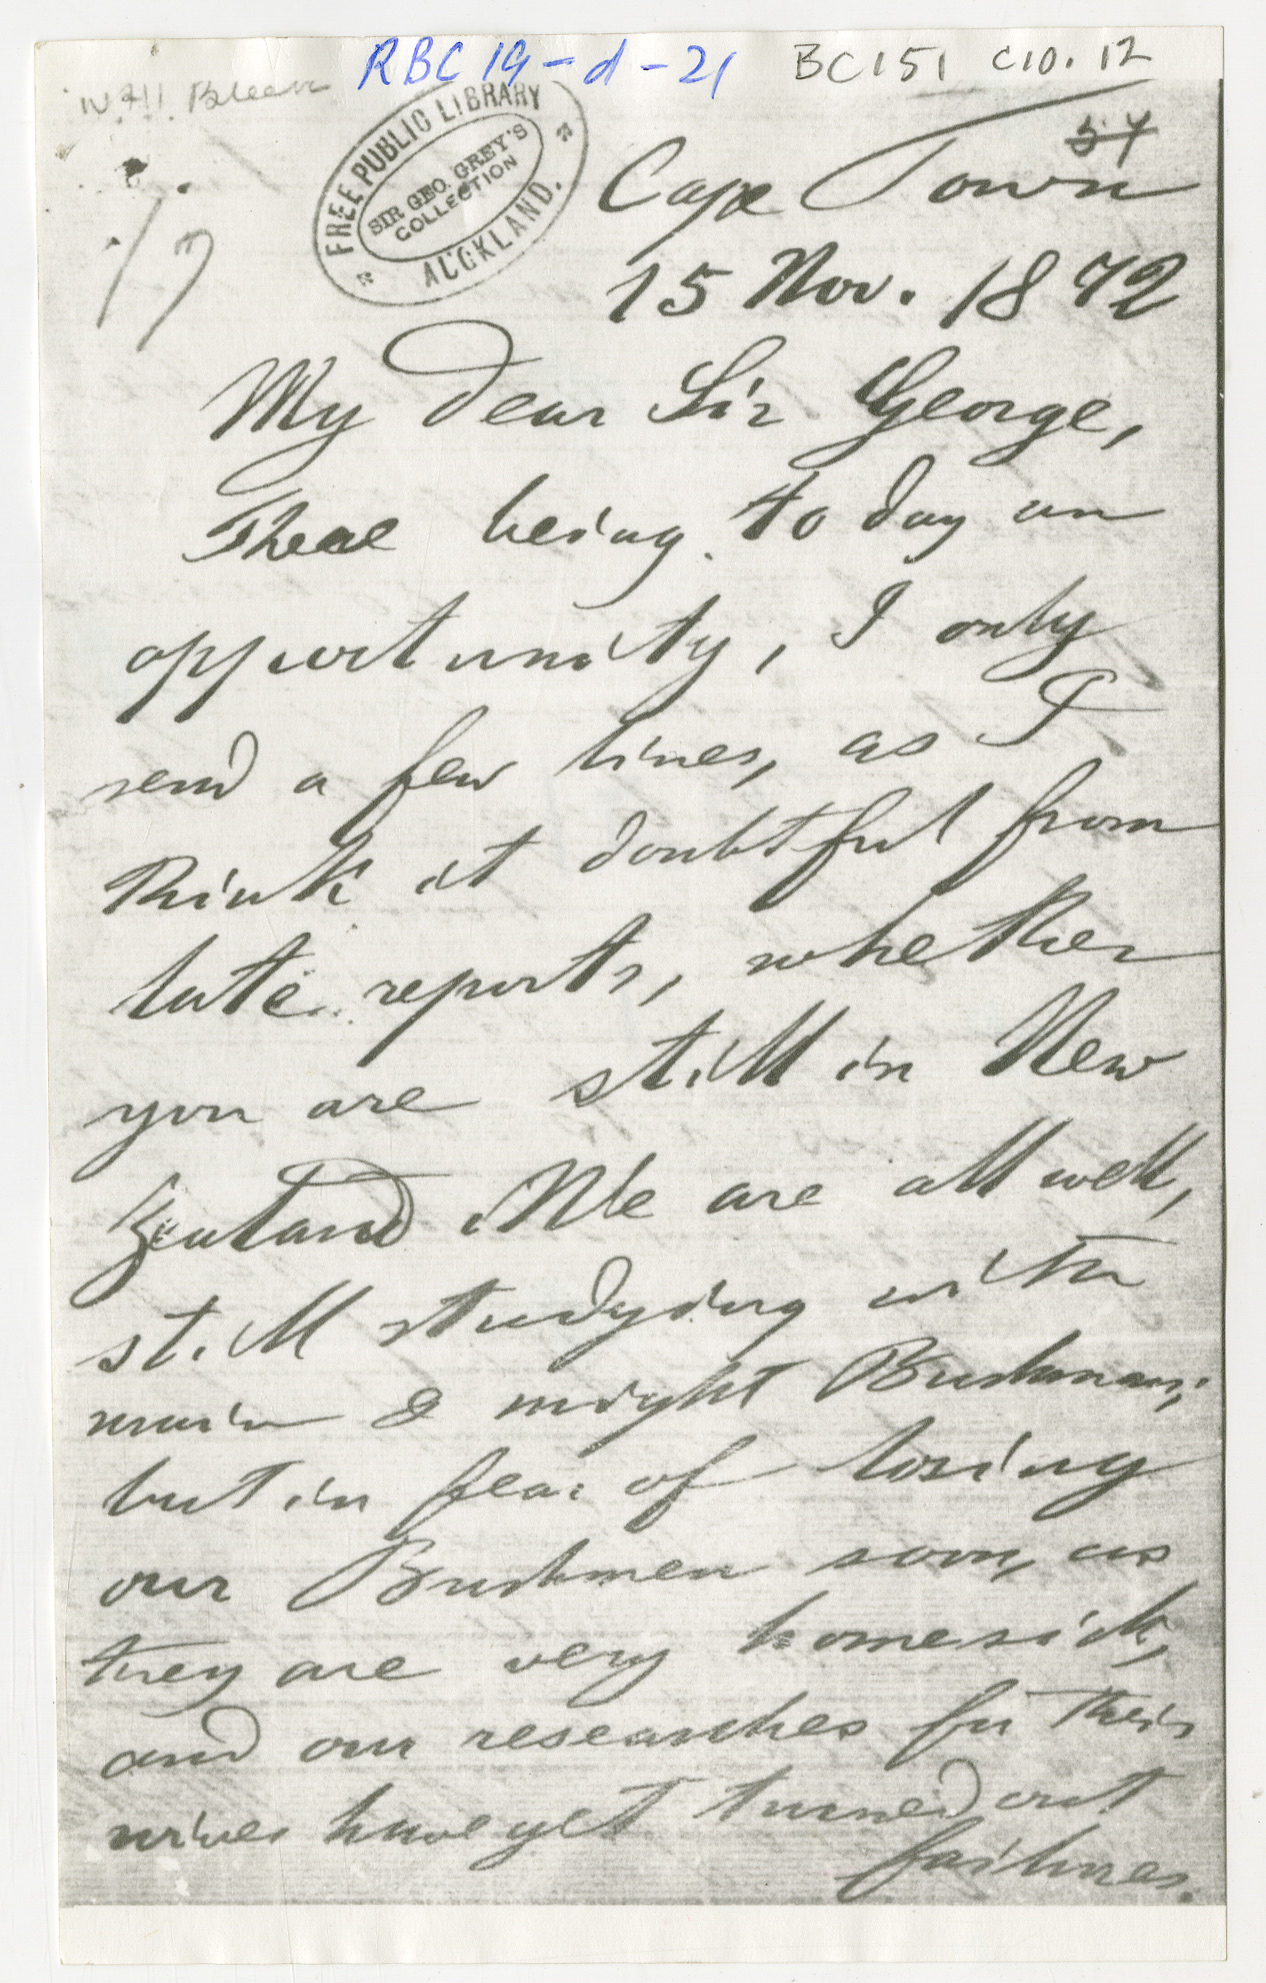 RBC 19-d-21 BC151 C10.12
W H I Bleek
FREE PUBLIC LIBRARY
SIR GEO. GREY'S
COLLECTION
AUCKLAND.
54
17
Cape Town
15 Nov. 1872
My dear Sir George,
There being to day an
opportunity, I only
send a few lines, as I
think it doubtful from
late reports, whether
you are still in New
Zealand. We are all well,
still studying with
main & might Bushman;
but in fear of losing
our Bushmen soon, as
they are very homesick,
and our researches for their
wives have yet turned out
failures.